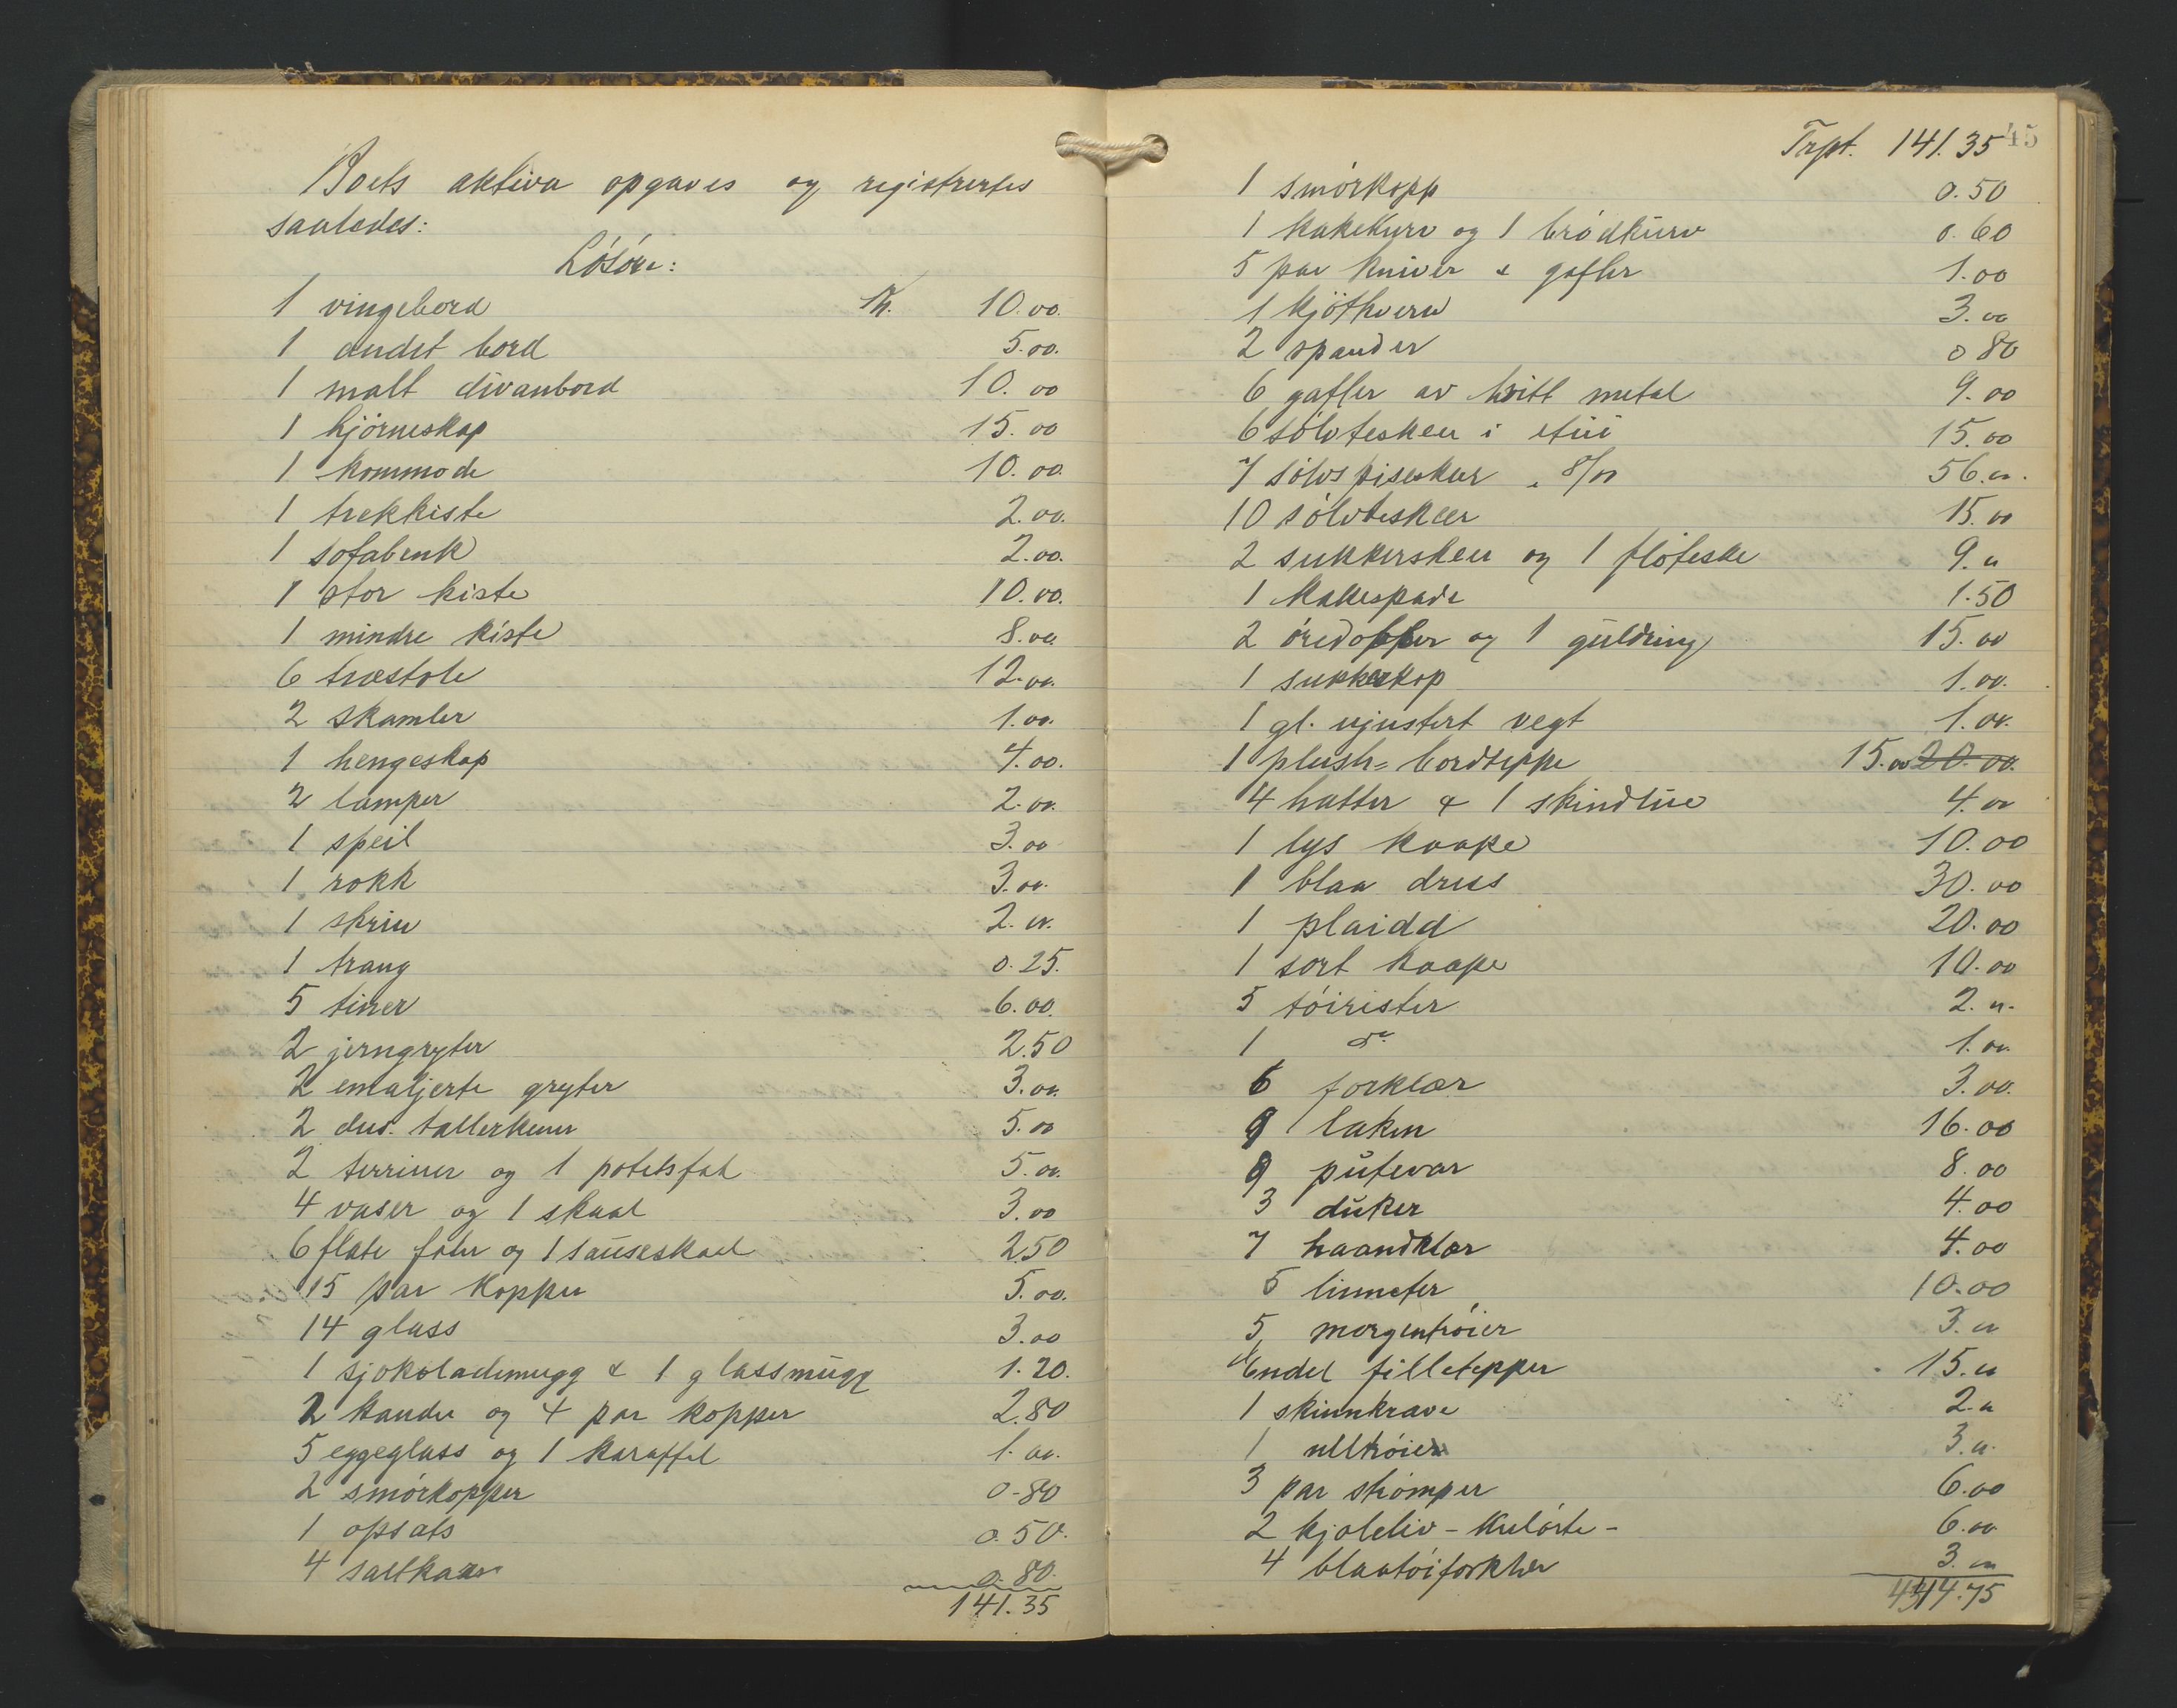 Boets aktiva opgaves og registrertes
saaledes:
Lösöre:
1 vingebord Kr. 10.00
1 andet bord 5.00.
1 malt divanbord 10.00
1 hjörneskap 15.00
1 kommode 10.00.
1 trekkiste 2.00.
1 sofabenk 2.00.
1 stor kiste 10.00.
1 mindre kiste 8.00
6 træstole 12.00.
2 skamler 1.00.
1 hengeskap 4.00.
2 lamper 2.00.
1 speil 3.00
1 rokk 3.00.
1 skrin 2.00.
1 traug 0.25.
5 tiner 6.00.
2 jerngryter 2.50
2 emaljerte gryter 3.00.
2 dus. tallerkener 5.00
2 terriner og 1 potetsfat 5.00.
4 vaser og 1 skaal 3.00
6 flate fater og 1 sauseskaal 2.50
15 par kopper 5.00.
14 glass 3.00
1 sjokolademugg & 1 glassmugg 1.20.
2 kander og 4 par kopper 2.80
5 eggeglass og 1 karaffel 1.00.
2 smörkopper 0.80
1 opsats 0.50.
4 saltkar 0.80.
141.35
45
Trpt. 141.35
1 smörkopp 0.50
1 kakekurv og 1 brödkurv 0.60
5 par kniver & gafler 1.00
1 kjötkvern 3.00
2 spander 0.80
6 gafler av hvitt metal 9.00
6 sölvteskeer i etui 15.00
7 sölvspiseskeer " 8/00 56.00.
10 sölvteskeer 15.00
2 sukkerskeer og 1 flöteske 9.00
1 kakespade 1.50
2 öredopper og 1 guldring 15.00
1 sukkerkop 1.00.
1 gl. ujustert vegt 1.00.
1 plush-bordteppe 15.00 20.00.
4 hatter & 1 skindlue 4.00
1 lys kaape 10.00
1 blaa dress 30.00
1 plaidd 20.00
1 sort kaape 10.00
5 töirister 2.00.
1 do. 1.00.
6 forklær 3.00.
9 laken 16.00
9 putevar 8.00
3 duker 4.00
7 haandklær 4.00
5 linneter 10.00
5 morgentröier 3.00
Endel filletepper 15.00
1 skinnkrave 2.00
1 ulltröie 3.00.
3 par strömper 6.00
2 kjoleliv - kulörte - 6.00
4 blaatöiforklær 3.00
444.75